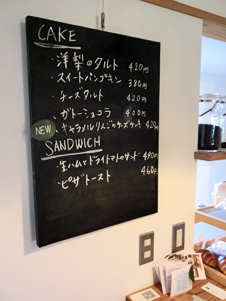 CAKE
・洋梨のタルト 420円
・スイートパンプキン 380円
・チーズタルト 420円
・ガトーショコラ 400円
NEW ・キャラメルりんごのチーズケーキ 420円
SANDWICH
・生ハムとドライトマトのサンド 480円
・ピザトースト 460円